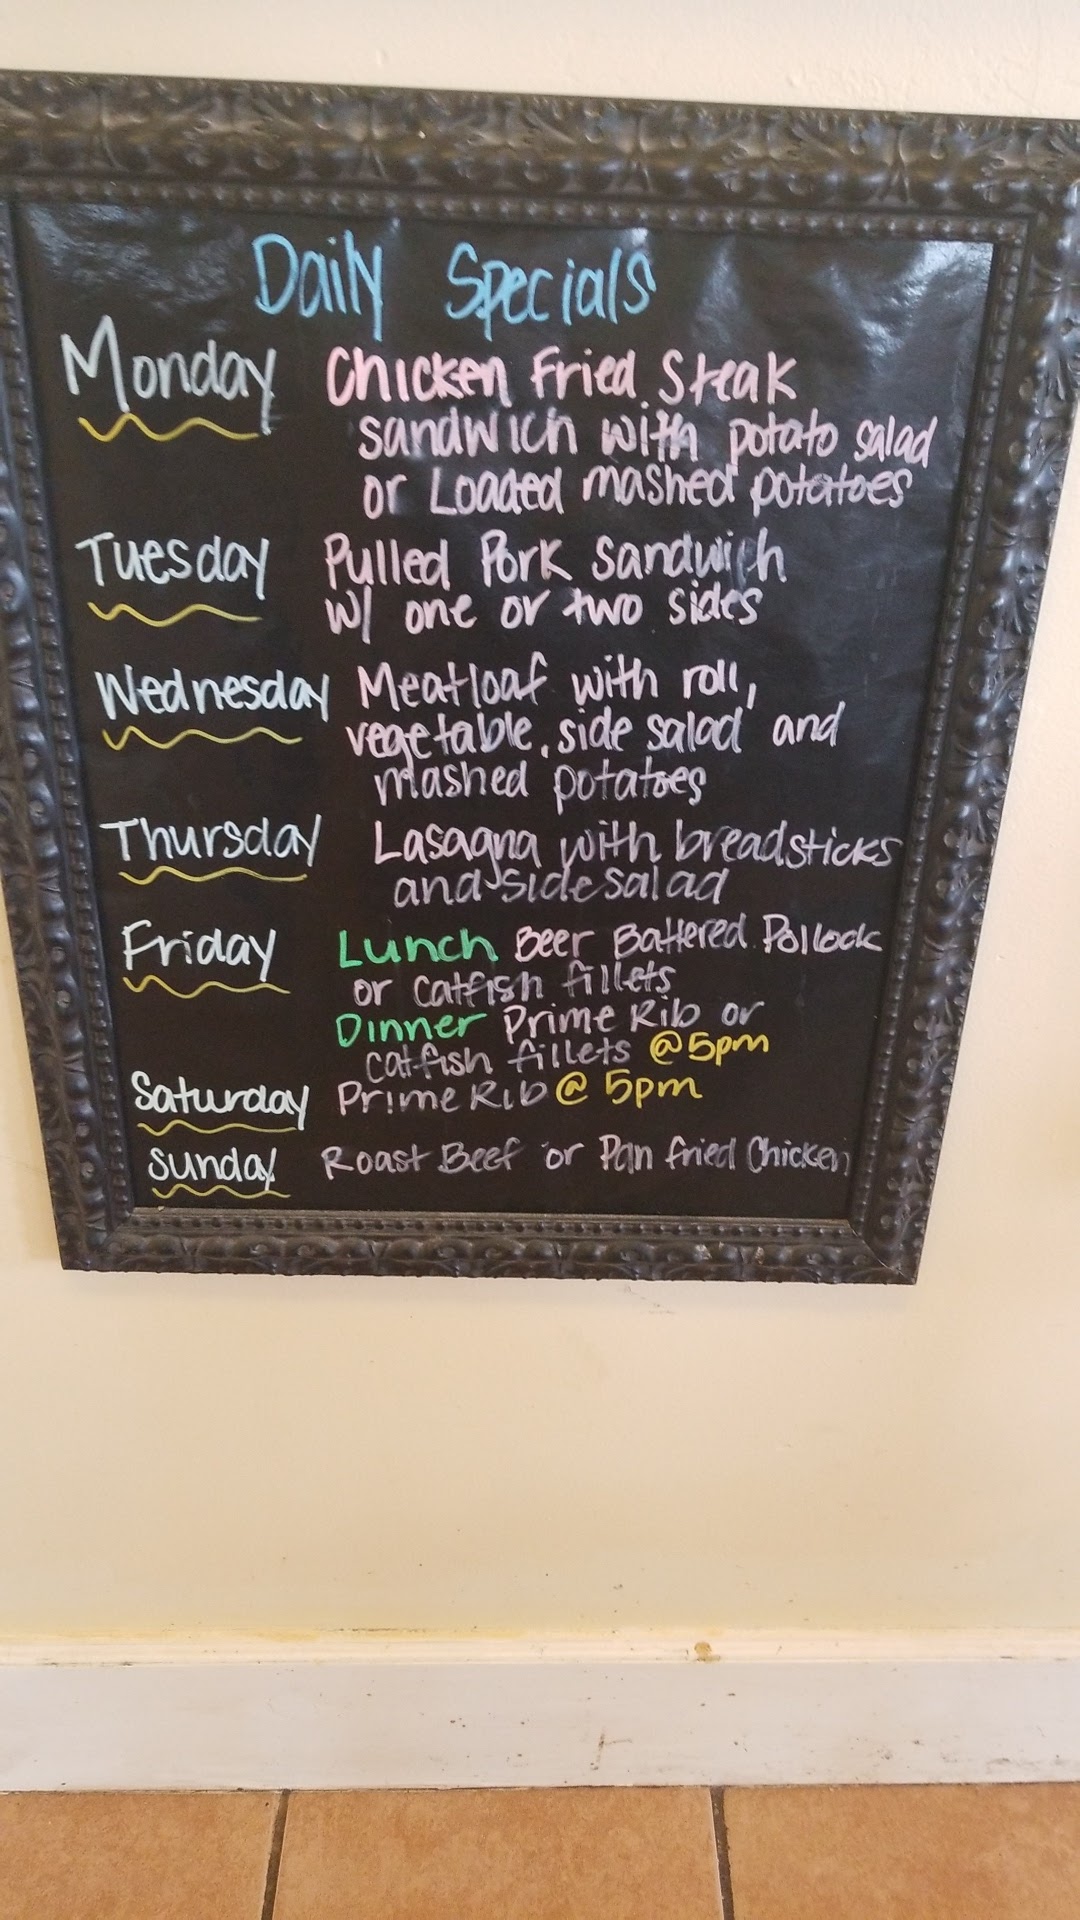 Daily Specials
Monday Chicken Fried Steak
sandwich with potato salad
or Loaded mashed potatoes
Tuesday Pulled Pork Sandwich
w/ one or two sides
Wednesday Meatloaf with roll,
vegetable, side salad and
mashed potatoes
Thursday Lasagna with breadsticks
and side salad
Friday Lunch Beer Battered Pollock
or catfish fillets
Dinner Prime Rib or
catfish fillets @ 5pm
Saturday Prime Rib @ 5pm
Sunday Roast Beef or Pan fried Chicken